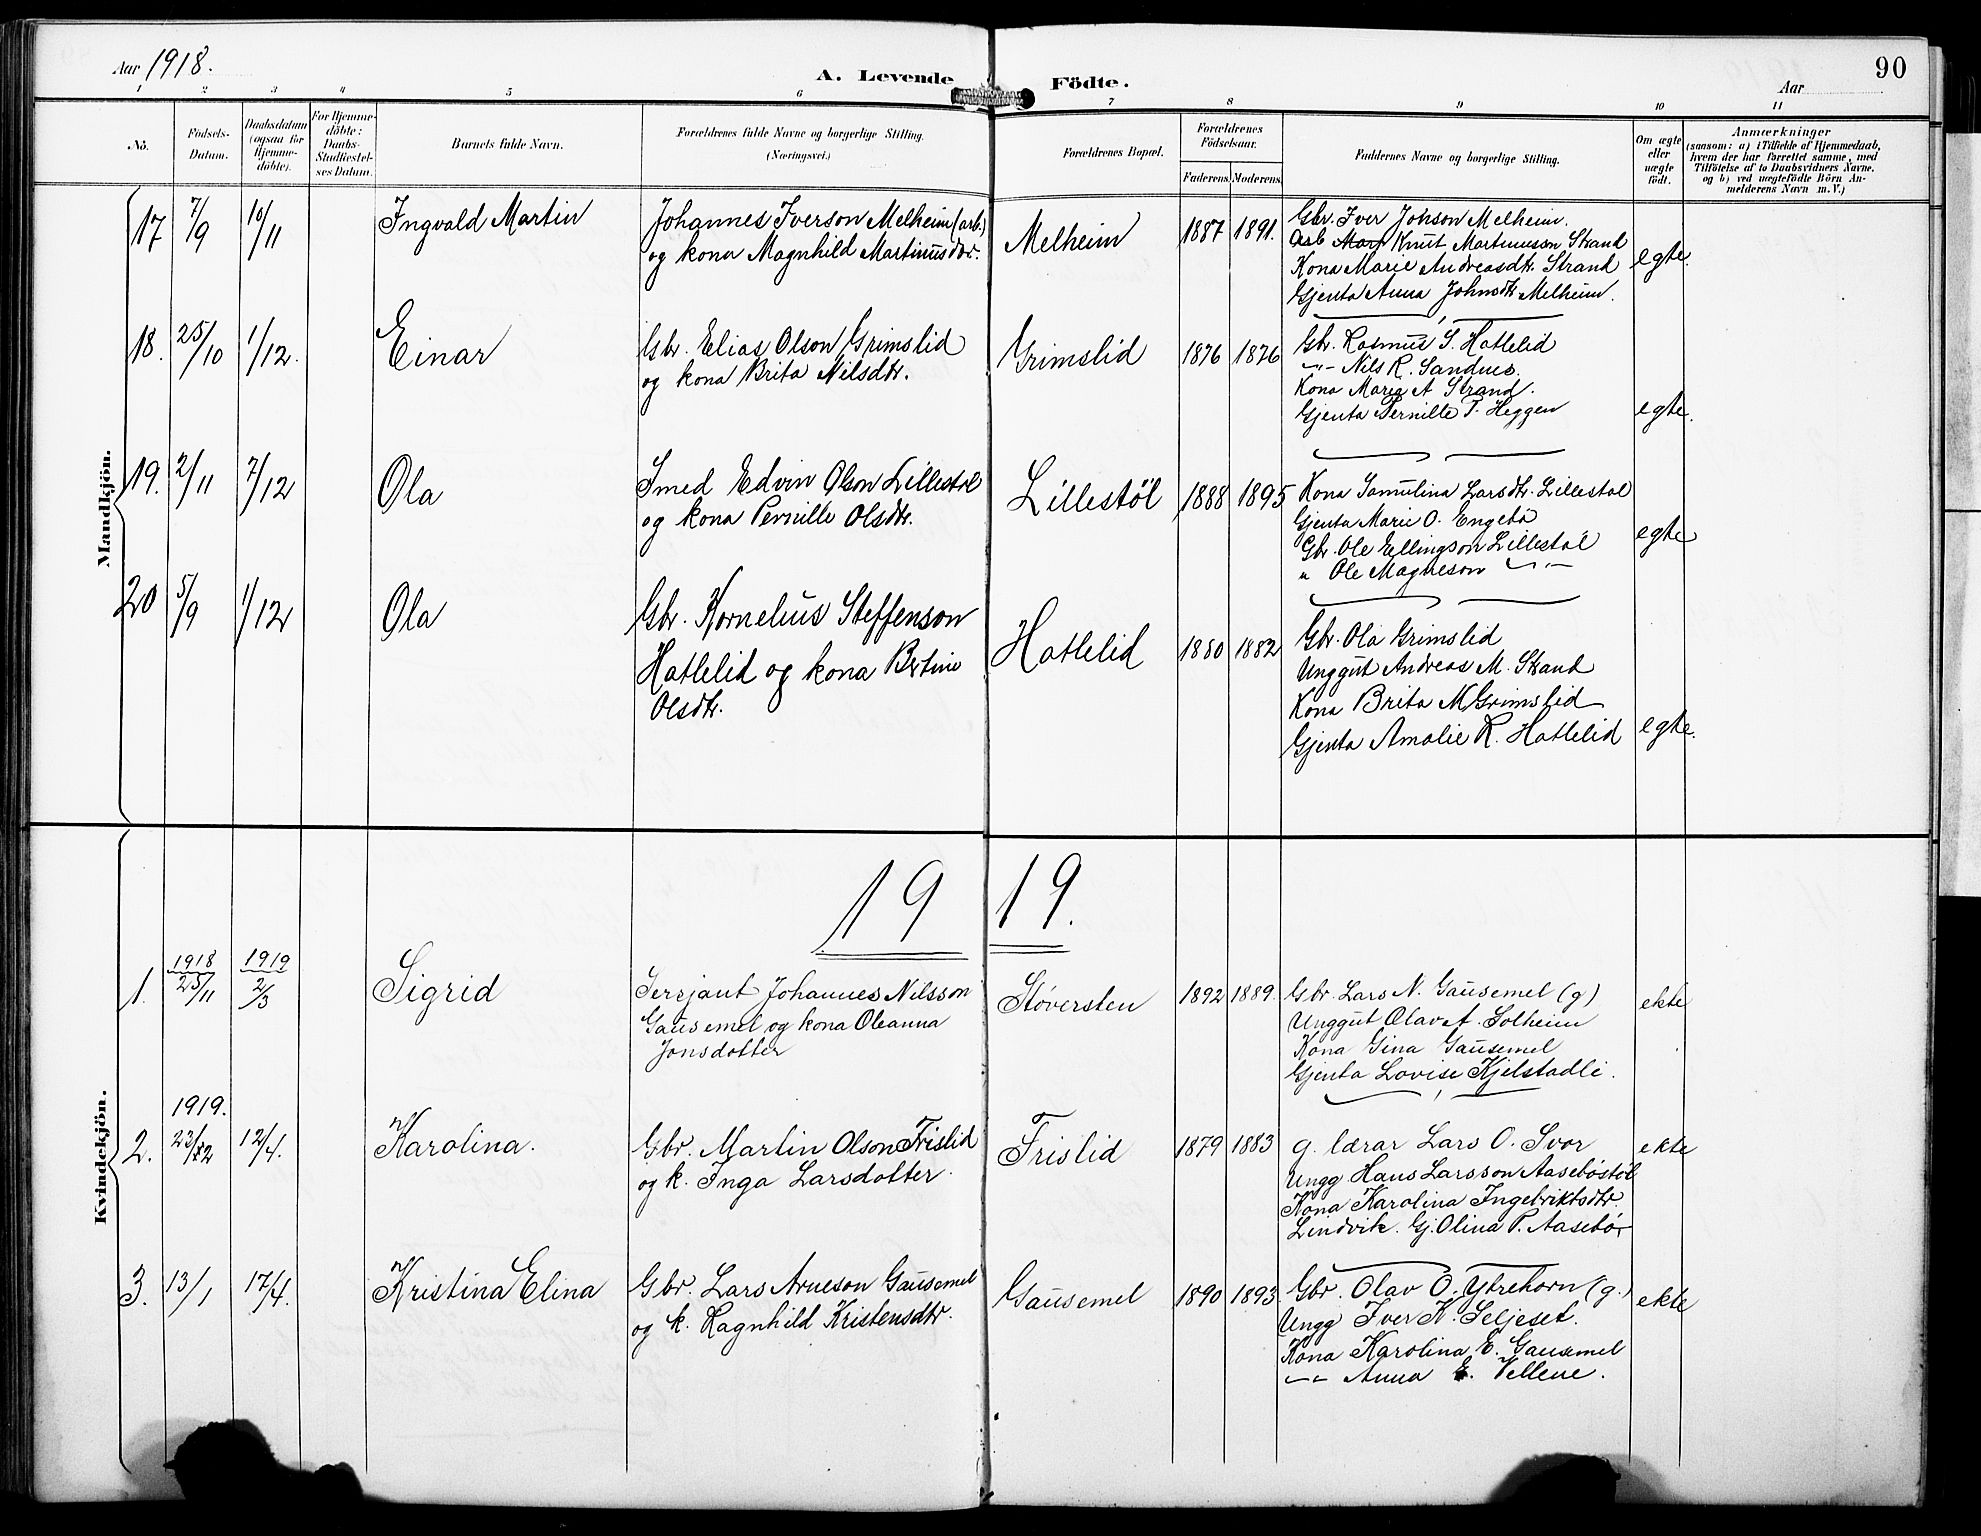 Aar 1918.
A. Levende Födte.
90
Aar
1 2 3 4 5 6 7 8 9 10 11
No.
Födsels-
Datum.
Daabsdatum
(ogsaa for
Hjemme-
döbte).
For Hjemme-
döbte:
Daabs-
Stadfæstel-
ses Datum.
Barnets fulde Navn.
Forældrenes fulde Navne og borgerlige Stilling.
(Næringsvei.)
Forældrenes Bopæl.
Forældrenes
Födselsaar.
Faderens. Moderens.
Faddernes Navne og borgerlige Stilling.
Om ægte
eller
uægte
födt.
Anmærkninger
(saasom: a) i Tilfælde af Hjemmedaab,
hvem der har forrettet samme, med
Tilföielse af to Daabsvidners Navne.
og b) ved uægtefödte Börn An-
melderens Navn m. V.)
Mandkjön.
17 7/9 10/11 Ingvald Martin
Johannes Iverson Melheim (arb.)
og kona Magnhild Martinusdtr.
Melheim 1887 1891.
Gbr. Iver Johson Melheim.
Arb Knut Martinusson Strand
Kona Marie Andreasdtr. Strand
Gjenta Anna Johnsdtr Melheim.
egte.
18. 25/10 1/12. Einar
Gbr. Elias Olson Grimslid
og kona Brita Nilsdtr.
Grimslid 1876 1876
Gbr. Rasmus S. Hatlelid
-"- Nils R. Sandnes.
Kona Maria A Strand.
Gjenta Pernille T. Heggen
egte.
19. 2/11 7/12 Ola
Smed Edvin Olson Lillestøl
og kona Pernille Olsdtr.
Lillestøl 1888 1895
Kona Samulina Larsdtr. Lillestøl
Gjenta Marie O. Engebø
Gbr. Ole Ellingson Lillestøl
" Ole Magneson -"-
egte
20 5/9 1/12 Ola
Gbr. Kornelius Steffenson
Hatlelid og kona Bertine
Olsdtr.
Hatlelid 1880 1882
Gbr. Ola Grimslid
Unggut Andreas M. Strand
Kona Brita M Grimslid
Gjenta Amalie R. Hatlelid
egte.
1919.
Kvindekjön.
1. 1918 25/11 1919 2/3 Sigrid
Serjant Johannes Nilsson
Gausemel og kona Oleanna
Jonsdotter
Støversten 1892 1889.
Gbr. Lars N. Gausemel (g)
Unggut Olav A. Solheim
Kona Gina Gausemel
Gjenta Lovise Kjelstadli.
ekte
1919.
2. 23/2 12/4. Karolina.
Gbr. Martin Olson Frislid
og k. Inga Larsdotter.
Frislid 1879 1883
g. lærar Lars O. Svor
Ungg Hans Larsson Aasebøstøl
Kona Karolina Ingebriktsdtr.
Lindvik. Gj. Olina P. Aasebø
ekte
3. 13/1 17/4. Kristina Elina
Gbr. Lars Arneson Gausemel
og k. Ragnhild Kristensdtr.
Gausemel 1890 1893
Gbr. Olav O. Ytrehorn (g.)
Ungg Iver K. Seljeset.
Kona Karolina E. Gausemel
-"- Anna E. Vellene.
ekte